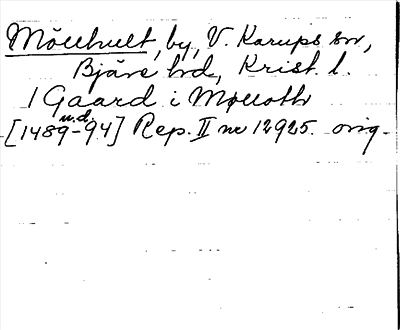 Möllhult, by, V. Karups sn,
Bjäre hd, Krist. l.
1 Gaard i Mølloth
u.d.
[1489-94] Rep. II nr 12925. orig.